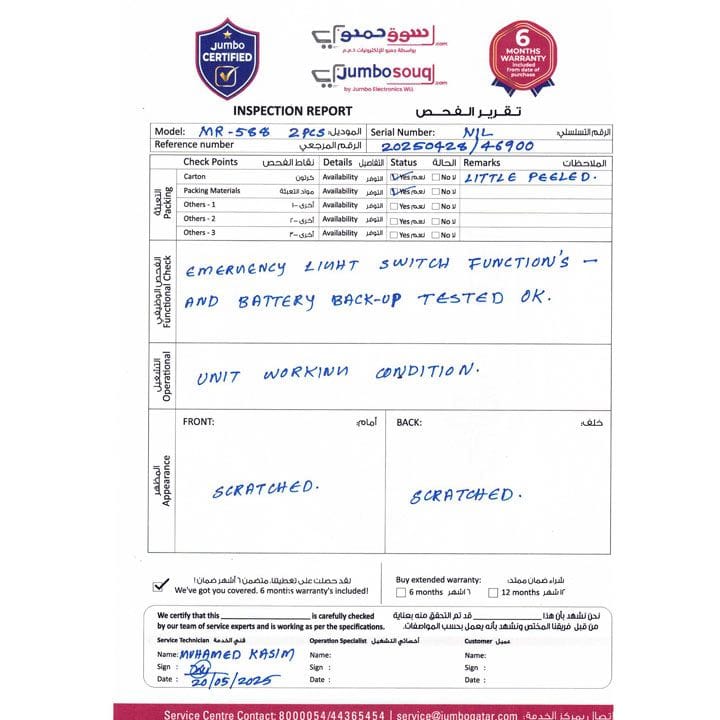 Jumbo
CERTIFIED
سوق جمبو.com
بواسطة جمبو للإلكترونيات ذ.م.م
jumbosouq.com
by Jumbo Electronics WLL
6
MONTHS
WARRANTY
Included
from date of
purchase
INSPECTION REPORT تقرير الفحص
Model: MR-588 2PCS الموديل: Serial Number: NIL الرقم التسلسلي:
Reference number الرقم المرجعي 20250428/46900
Check Points نقاط الفحص Details التفاصيل Status الحالة Remarks الملاحظات
Packing التعبئة
Carton كرتون Availability التوفر Yes نعم No لا LITTLE PEELED.
Packing Materials مواد التعبئة Availability التوفر Yes نعم No لا
Others - 1 أخرى -١ Availability التوفر Yes نعم No لا
Others - 2 أخرى -٢ Availability التوفر Yes نعم No لا
Others - 3 أخرى -٣ Availability التوفر Yes نعم No لا
Functional Check الفحص الوظيفي
EMERGENCY LIGHT SWITCH FUNCTION'S -
AND BATTERY BACK-UP TESTED OK.
Operational التشغيل
UNIT WORKINN CONDITION.
Appearance المظهر
FRONT: أمام: BACK: خلف:
SCRATCHED. SCRATCHED.
لقد حصلت على تغطيتنا. متضمن ٦ أشهر ضمان!
We've got you covered. 6 months warranty's included!
Buy extended warranty: شراء ضمان ممتد:
6 months ٦ اشهر 12 months ١٢ شهر
We certify that this is carefully checked
by our team of service experts and is working as per the specifications.
نحن نشهد بأن هذا قد تم التحقق منه بعناية
من قبل فريقنا المختص ونشهد بأنه يعمل بحسب المواصفات.
Service Technician فني الخدمة Operation Specialist أخصائي التشغيل Customer عميل
Name: MUHAMED KASIM Name: Name:
Sign : Sign : Sign :
Date : 20/05/2025 Date : Date :
Service Centre Contact: 8000054/44365454 | service@jumboqatar.com اتصال بمركز الخدمة: